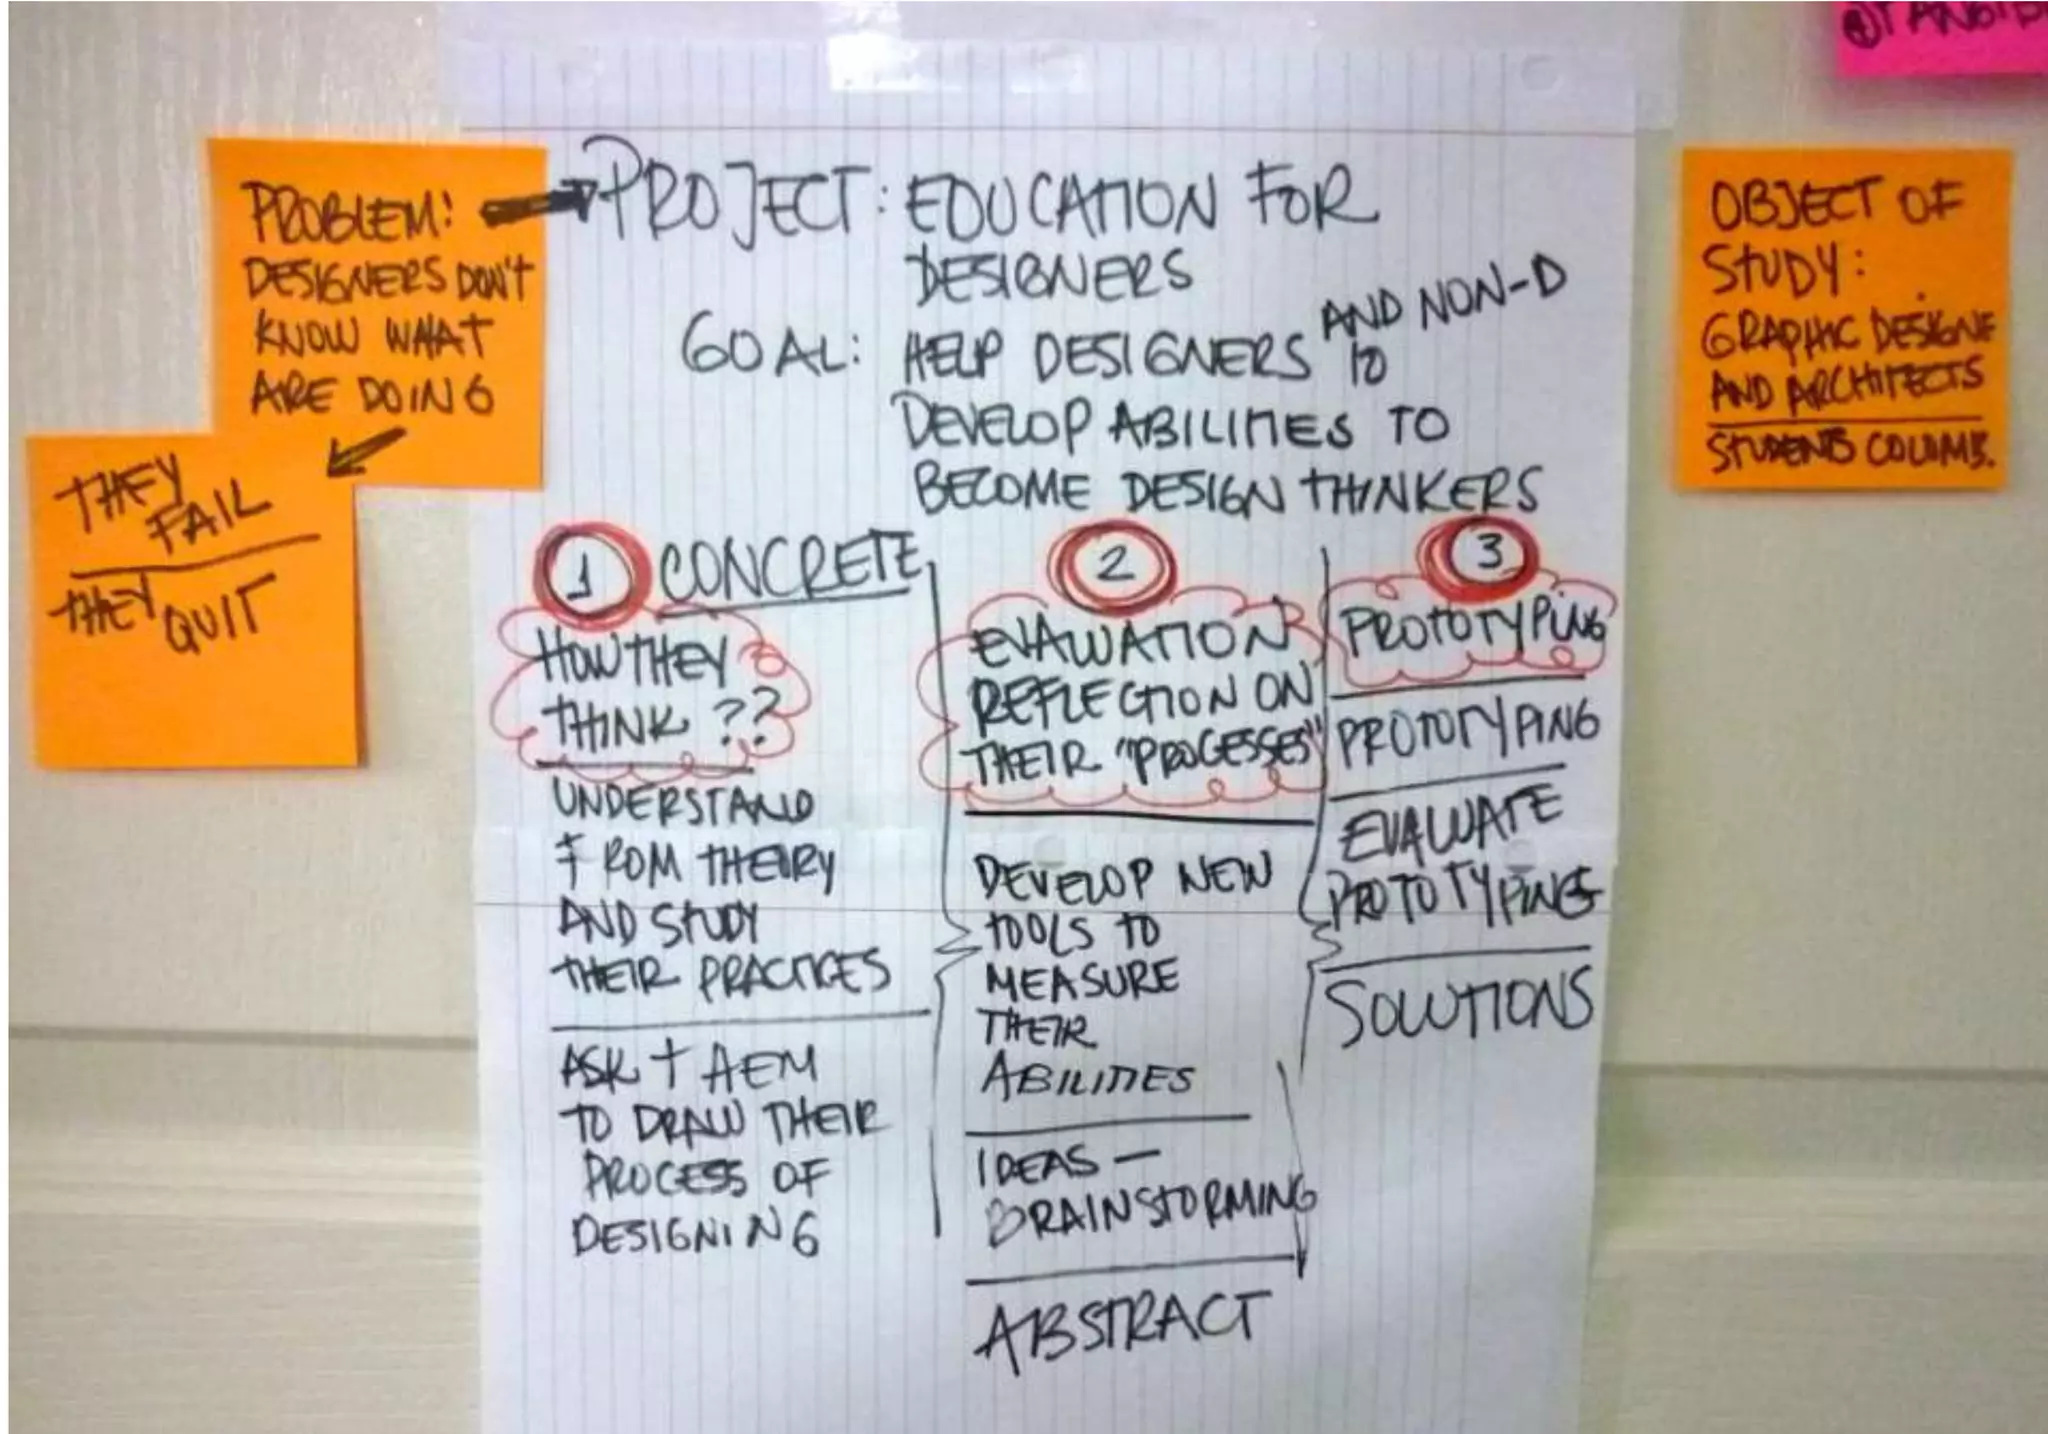 PROBLEM:
DESIGNERS DON'T
KNOW WHAT
ARE DOING
THEY
FAIL
THEY QUIT
PROJECT: EDUCATION FOR
DESIGNERS
AND NON-D
GOAL: HELP DESIGNERS TO
DEVELOP ABILITIES TO
BECOME DESIGN THINKERS
1 CONCRETE
HOW THEY
THINK ??
UNDERSTAND
FROM THEORY
AND STUDY
THEIR PRACTICES
ASK THEM
TO DRAW THEIR
PROCESS OF
DESIGNING
2
EVALUATION
REFLECTION ON
THEIR "PROCESSES"
DEVELOP NEW
TOOLS TO
MEASURE
THEIR
ABILITIES
IDEAS —
BRAINSTORMING
ABSTRACT
3
PROTOTYPING
PROTOTYPING
EVALUATE
PROTOTYPINGS
SOLUTIONS
OBJECT OF
STUDY:
GRAPHIC DESIGNE
AND ARCHITECTS
STUDENTS COLUMB.